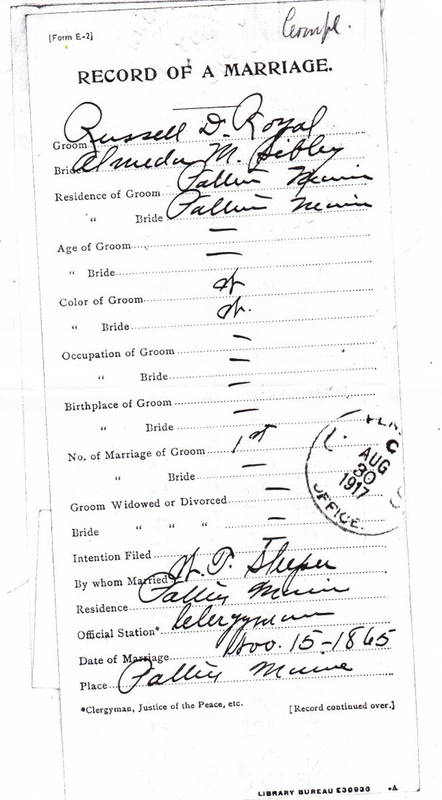 [Form E-2]
Compl.
RECORD OF A MARRIAGE.
Groom Russell D. Royal
Bride Almeda M. Sibley
Residence of Groom
" Bride
Age of Groom —
" Bride —
Color of Groom
" Bride
Occupation of Groom —
" Bride —
Birthplace of Groom —
" Bride —
No. of Marriage of Groom 1st
" Bride —
Groom Widowed or Divorced —
Bride " " " —
Intention Filed —
By whom Married
Residence
Official Station* Clergyman
Date of Marriage Nov. 15-1865
Place Maine
*Clergyman, Justice of the Peace, etc. [Record continued over.]
AUG
30
1917
OFFICE.
LIBRARY BUREAU E30936